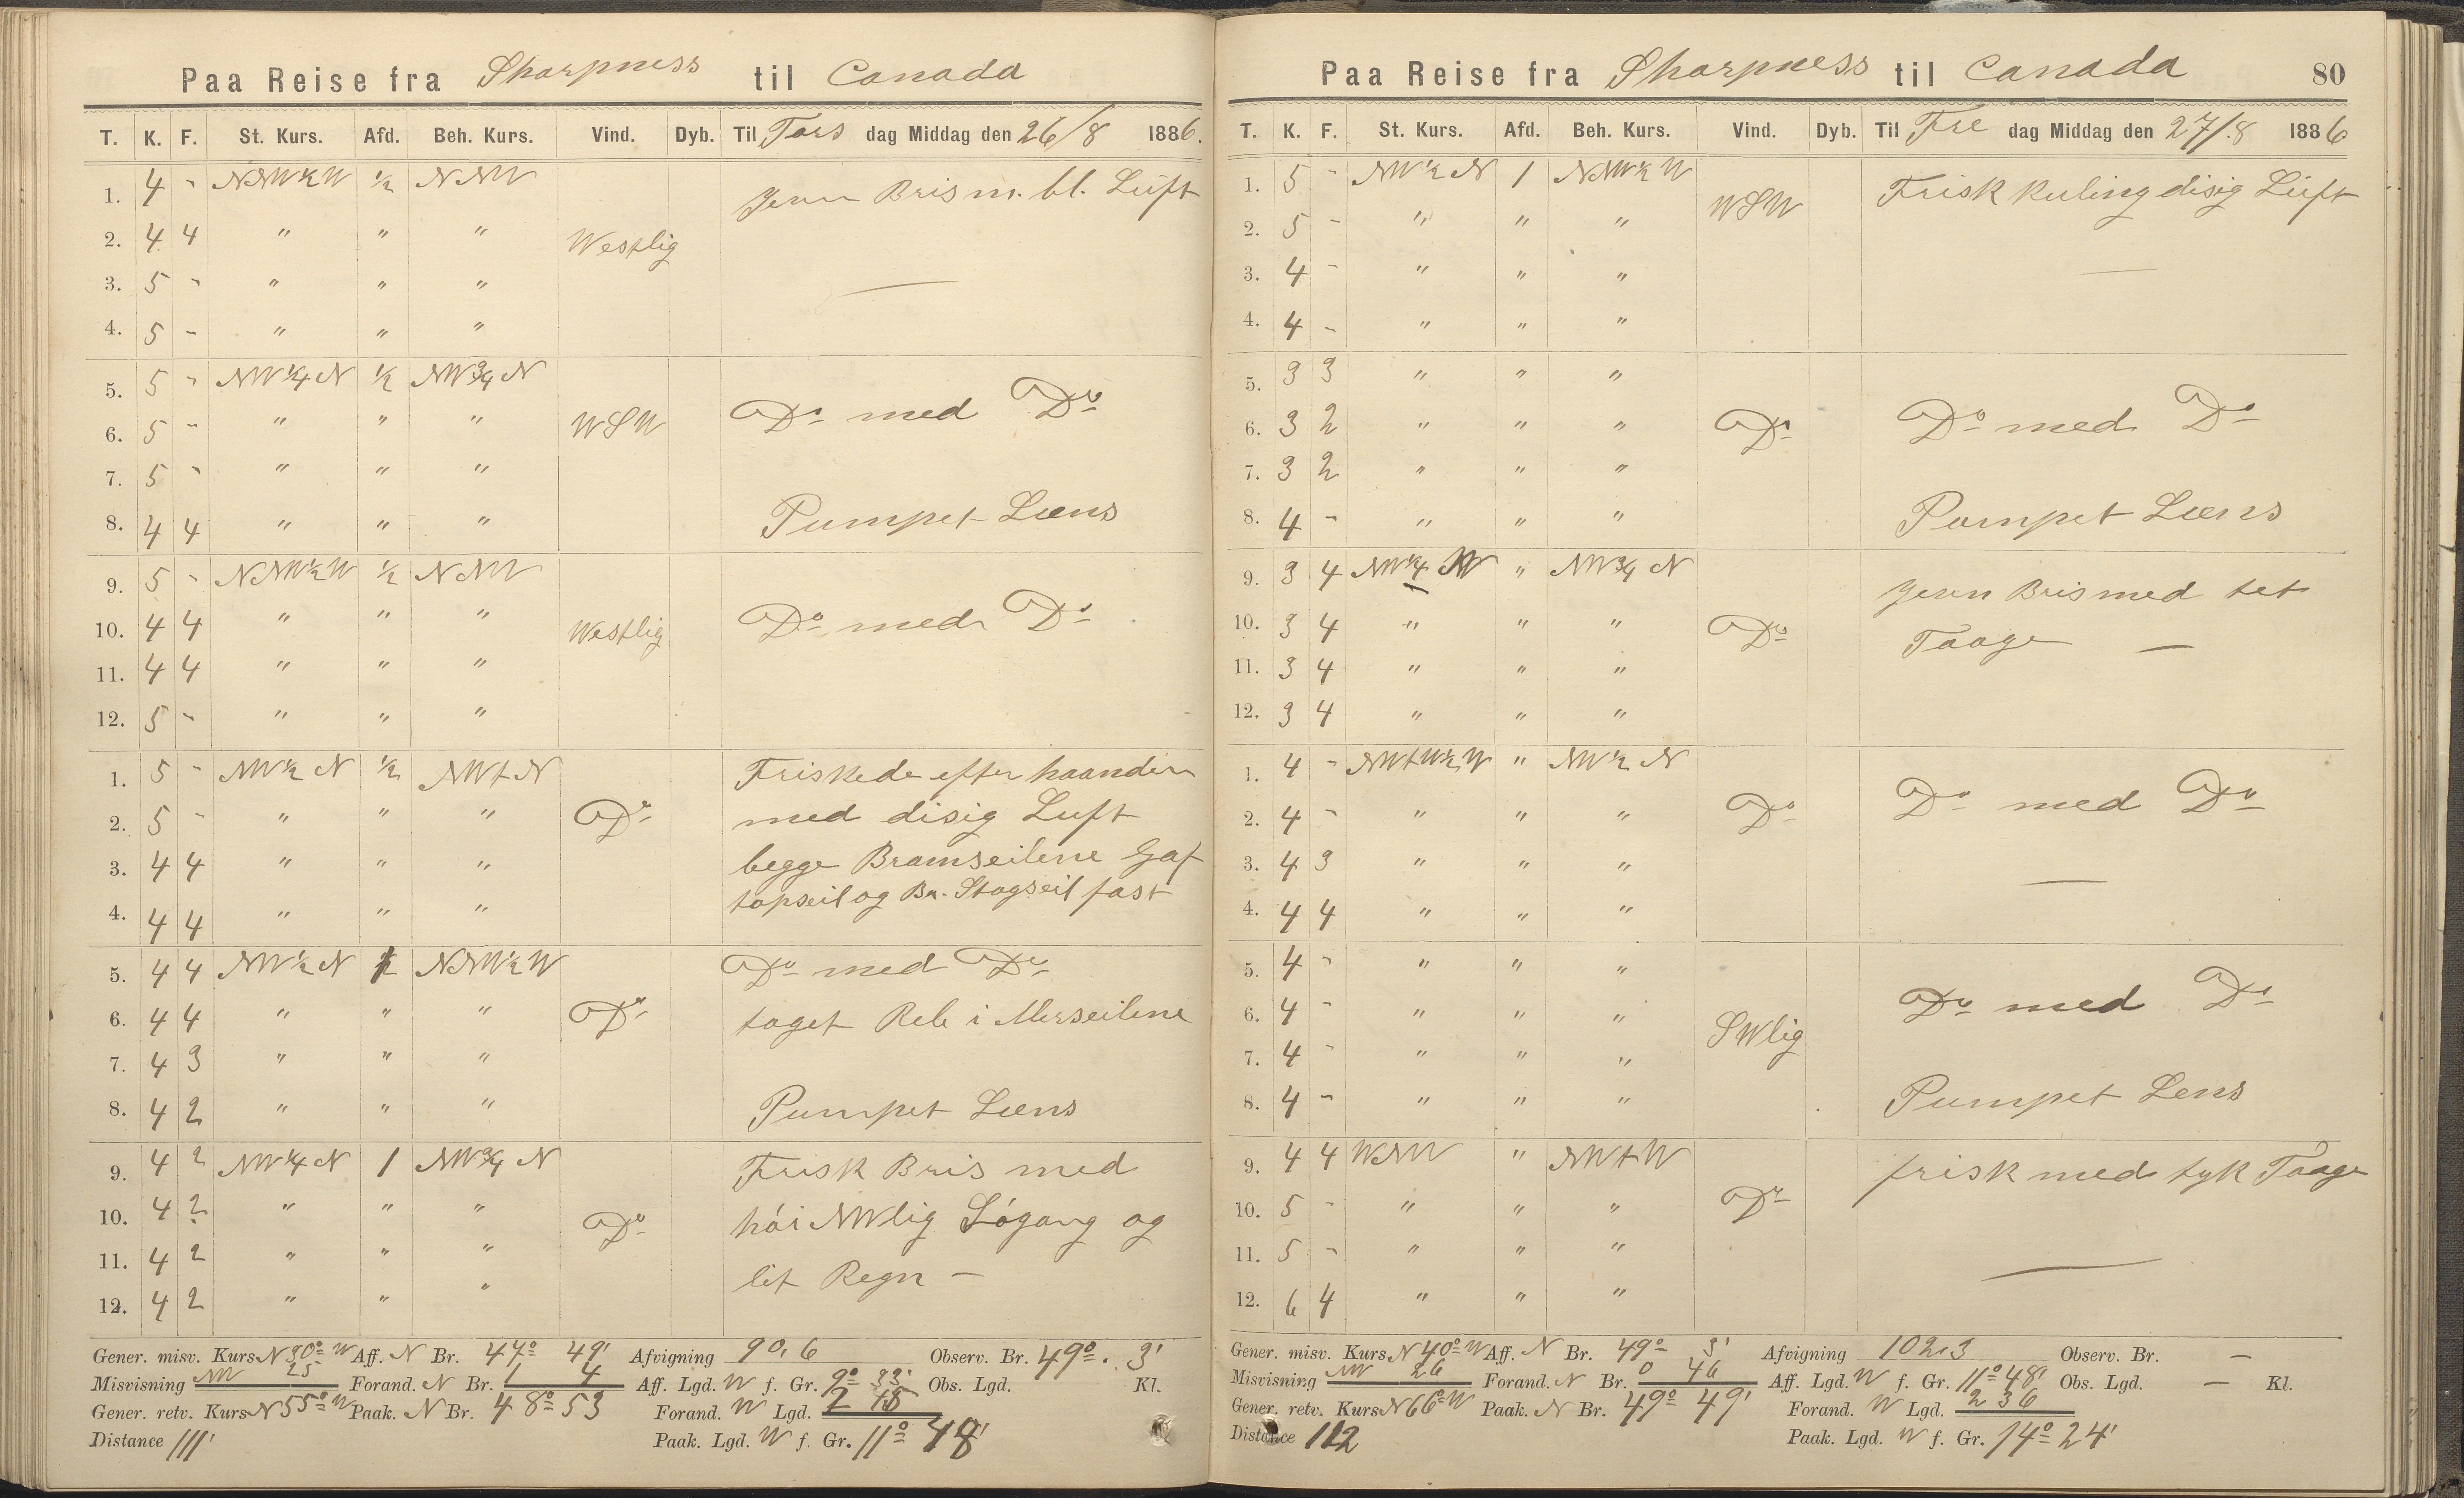 Paa Reise fra Sharpness til Canada
T. K. F. St. Kurs. Afd. Beh. Kurs. Vind. Dyb. Til Tors dag Middag den 26/8 1886.
1. 4 - NNW½W ½ NNW Jevn Bris m. bl. Luft
2. 4 4 " " " Westlig
3. 5 - " " " —
4. 5 - " " "
5. 5 - NW¼N ½ NW¾N
6. 5 - " " " WSW Do med Do
7. 5 - " " "
8. 4 4 " " " Pumpet Læns
9. 5 - NNW½W ½ NNW
10. 4 4 " " " Westlig Do med Do
11. 4 4 " " "
12. 5 - " " "
1. 5 - NW½N ½ NWtN Friskede efter haanden
2. 5 - " " " Do med disig Luft
3. 4 4 " " " begge Bramseilene Gaf
4. 4 4 " " " topseil og Br. Stagseil fast
5. 4 4 NW½N ½ NNW½W Do med Do
6. 4 4 " " " Do taget Reb i Merseilene
7. 4 3 " " "
8. 4 2 " " " Pumpet Læns
9. 4 2 NW¼N 1 NW¾N Frisk Bris med
10. 4 2 " " " Do hói NWlig Sógang og
11. 4 2 " " " lit Regn —
12. 4 2 " " "
Gener. misv. Kurs N 30° W Aff. N Br. 47° 49' Afvigning 90,6 Observ. Br. 49°. 3'
Misvisning NW 25 Forand. N Br. 1 4 Aff. Lgd. W f. Gr. 9° 33' Obs. Lgd. Kl.
Gener. retv. Kurs N 55° W Paak. N Br. 48° 53 Forand. W Lgd. 2 15
Distance 111' Paak. Lgd. W f. Gr. 11° 48'
Paa Reise fra Sharpness til Canada 80
T. K. F. St. Kurs. Afd. Beh. Kurs. Vind. Dyb. Til Fre dag Middag den 27/8 1886
1. 5 - NW½N 1 NNW½W Frisk Kuling disig Luft
2. 5 - " " " WSW
3. 4 - " " " —
4. 4 - " " "
5. 3 3 " " "
6. 3 2 " " " Do Do med Do
7. 3 2 " " "
8. 4 - " " " Pumpet Læns
9. 3 4 NW¼W " NW¾N Jevn Bris med tet
10. 3 4 " " " Do Taage —
11. 3 4 " " "
12. 3 4 " " "
1. 4 - NWtW½W " NW½N
2. 4 - " " " Do Do med Do
3. 4 3 " " "
4. 4 4 " " " —
5. 4 - " " "
6. 4 - " " " SWlig Do med Do
7. 4 - " " "
8. 4 - " " " Pumpet Lens
9. 4 4 WNW " NWtW frisk med tyk Taage
10. 5 - " " " Do
11. 5 - " " " —
12. 6 4 " " "
Gener. misv. Kurs N 40° W Aff. N Br. 49° 3' Afvigning 102,3 Observ. Br. —
Misvisning NW 26 Forand. N Br. 0 46 Aff. Lgd. W f. Gr. 11° 48' Obs. Lgd. — Kl.
Gener. retv. Kurs N 66° W Paak. N Br. 49° 49' Forand. W Lgd. 2 36
Distance 112 Paak. Lgd. W f. Gr. 14° 24'